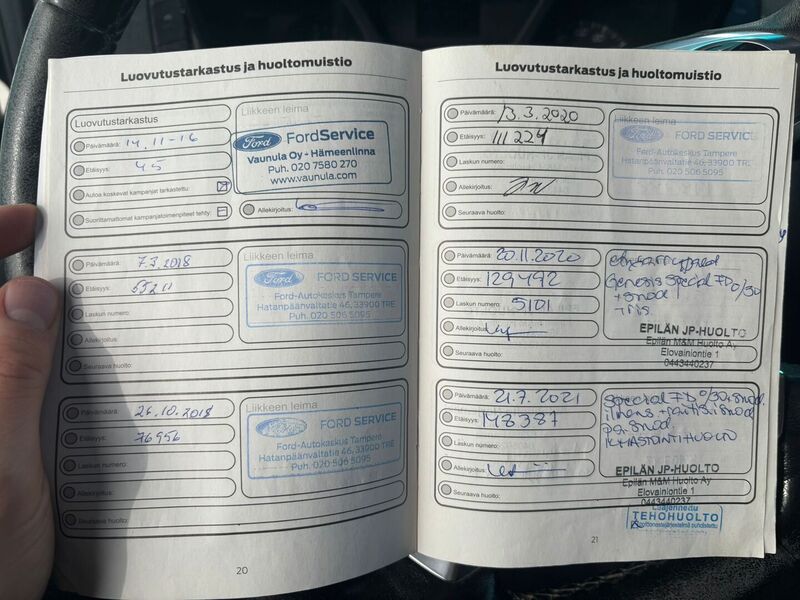 Luovutustarkastus ja huoltomuistio
Luovutustarkastus
Päivämäärä: 14.11-16
Etäisyys: 45
Autoa koskevat kampanjat tarkastettu:
Suorittamattomat kampanjatoimenpiteet tehty:
Liikkeen leima
Ford FordService
Vaunula Oy - Hämeenlinna
Puh. 020 7580 270
www.vaunula.com
Allekirjoitus:
Päivämäärä: 7.3.2018
Etäisyys:
Laskun numero:
Allekirjoitus:
Seuraava huolto:
Liikkeen leima
Ford FORD SERVICE
Ford-Autokeskus Tampere
Hatanpäänvaltatie 46, 33900 TRE
Puh. 020 506 5095
Päivämäärä: 26.10.2018
Etäisyys: 76956
Laskun numero:
Allekirjoitus:
Seuraava huolto:
Liikkeen leima
Ford FORD SERVICE
Ford-Autokeskus Tampere
Hatanpäänvaltatie 46, 33900 TRE
Puh. 020 506 5095
20
Luovutustarkastus ja huoltomuistio
Päivämäärä: 13.3.2020
Etäisyys: 111224
Laskun numero:
Allekirjoitus:
Seuraava huolto:
Ford FORD SERVICE
Ford-Autokeskus Tampere
Hatanpäänvaltatie 46, 33900 TRE
Puh. 020 506 5095
Päivämäärä: 20.11.2020
Etäisyys: 129492
Laskun numero: 5101
Allekirjoitus:
Seuraava huolto:
Genesis Special FD 0/30
EPILÄN JP-HUOLTO
Epilän M&M Huolto Ay
Elovainiontie 1
0443440237
Päivämäärä: 21.7.2021
Etäisyys: 148387
Laskun numero:
Allekirjoitus:
Seuraava huolto:
Special FD 0/30
MÄÄRÄAIKAISHUOLTO
EPILÄN JP-HUOLTO
Epilän M&M Huolto Ay
Elovainiontie 1
0443440237
Laajennettu
TEHOHUOLTO
21